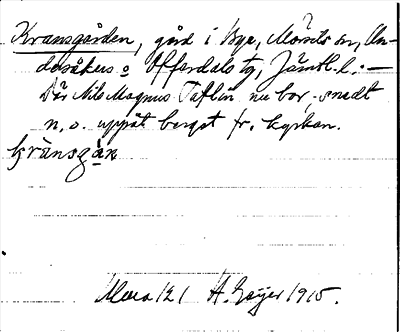 Kransgården, gård i Bye, Mörsils sn, Un-
dersåkers o Offerdals tg, Jämtl. l. —
Där Nils Magnus Taflin nu bor, snedt
n. o. uppåt berget fr. kyrkan.
kránsgàɳ
Mora 12 1 H. Geijer 1915.